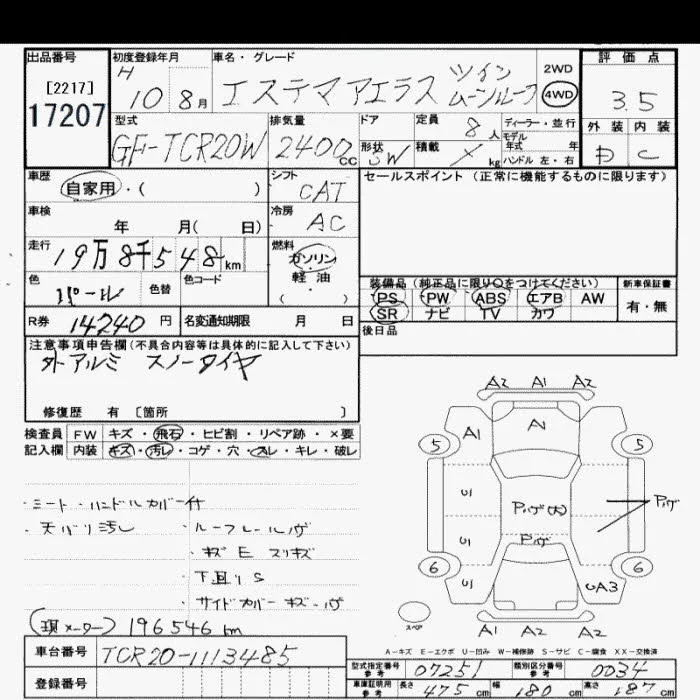 出品番号
[2217]
17207
初度登録年月
H 10 8月
車名・グレード
エステマ アエラス ツイン ムーンルーフ
2WD
4WD
評価点
3.5
外装 内装
D C
型式
GF-TCR20W
排気量
2400cc
ドア
形状
SW
定員
8人
積載
× kg
ディーラー・並行
モデル年式 年
ハンドル 左・右
車歴
自家用・( )
シフト
CAT
セールスポイント(正常に機能するものに限ります)
車検
年 月( 日)
冷房
AC
走行
19万8千548km
燃料
ガソリン
軽・油
( )
色
パール
色替
色コード
装備品(純正品に限り○をつけてください)
PS PW ABS エアB AW
SR ナビ TV カワ
新車保証書
有・無
R券 14240円
名変通知期限 月 日
後日品
注意事項申告欄(不具合内容等は具体的に記入して下さい)
外アルミ スノータイヤ
修復歴 有 〔箇所 〕
検査員 FW キズ・飛石・ヒビ割・リペア跡・×要
記入欄 内装 キズ・汚レ・コゲ・穴・スレ・キレ・破レ
・シート・ハンドルカバー付
・天バリ汚レ
・ルーフレールハゲ
・キズ E スリキズ
・下回り S
・サイドカバー キズ・ハゲ
(現メーター) 196546 km
A2 A1 A2
A1 A1
5 5
U1
Pハゲ(大)
Pハゲ
U1
Pハゲ
6 6
U1
UA3
スペア
A1 A2 A2
A-キズ E-エクボ U-凹み W-補修跡 S-サビ C-腐食 XX-交換済
車台番号
TCR20-1113485
登録番号
型式指定番号 参考 07251
類別区分番号 参考 0034
車庫証明用 参考 長さ 475cm 幅 180cm 高さ 187cm